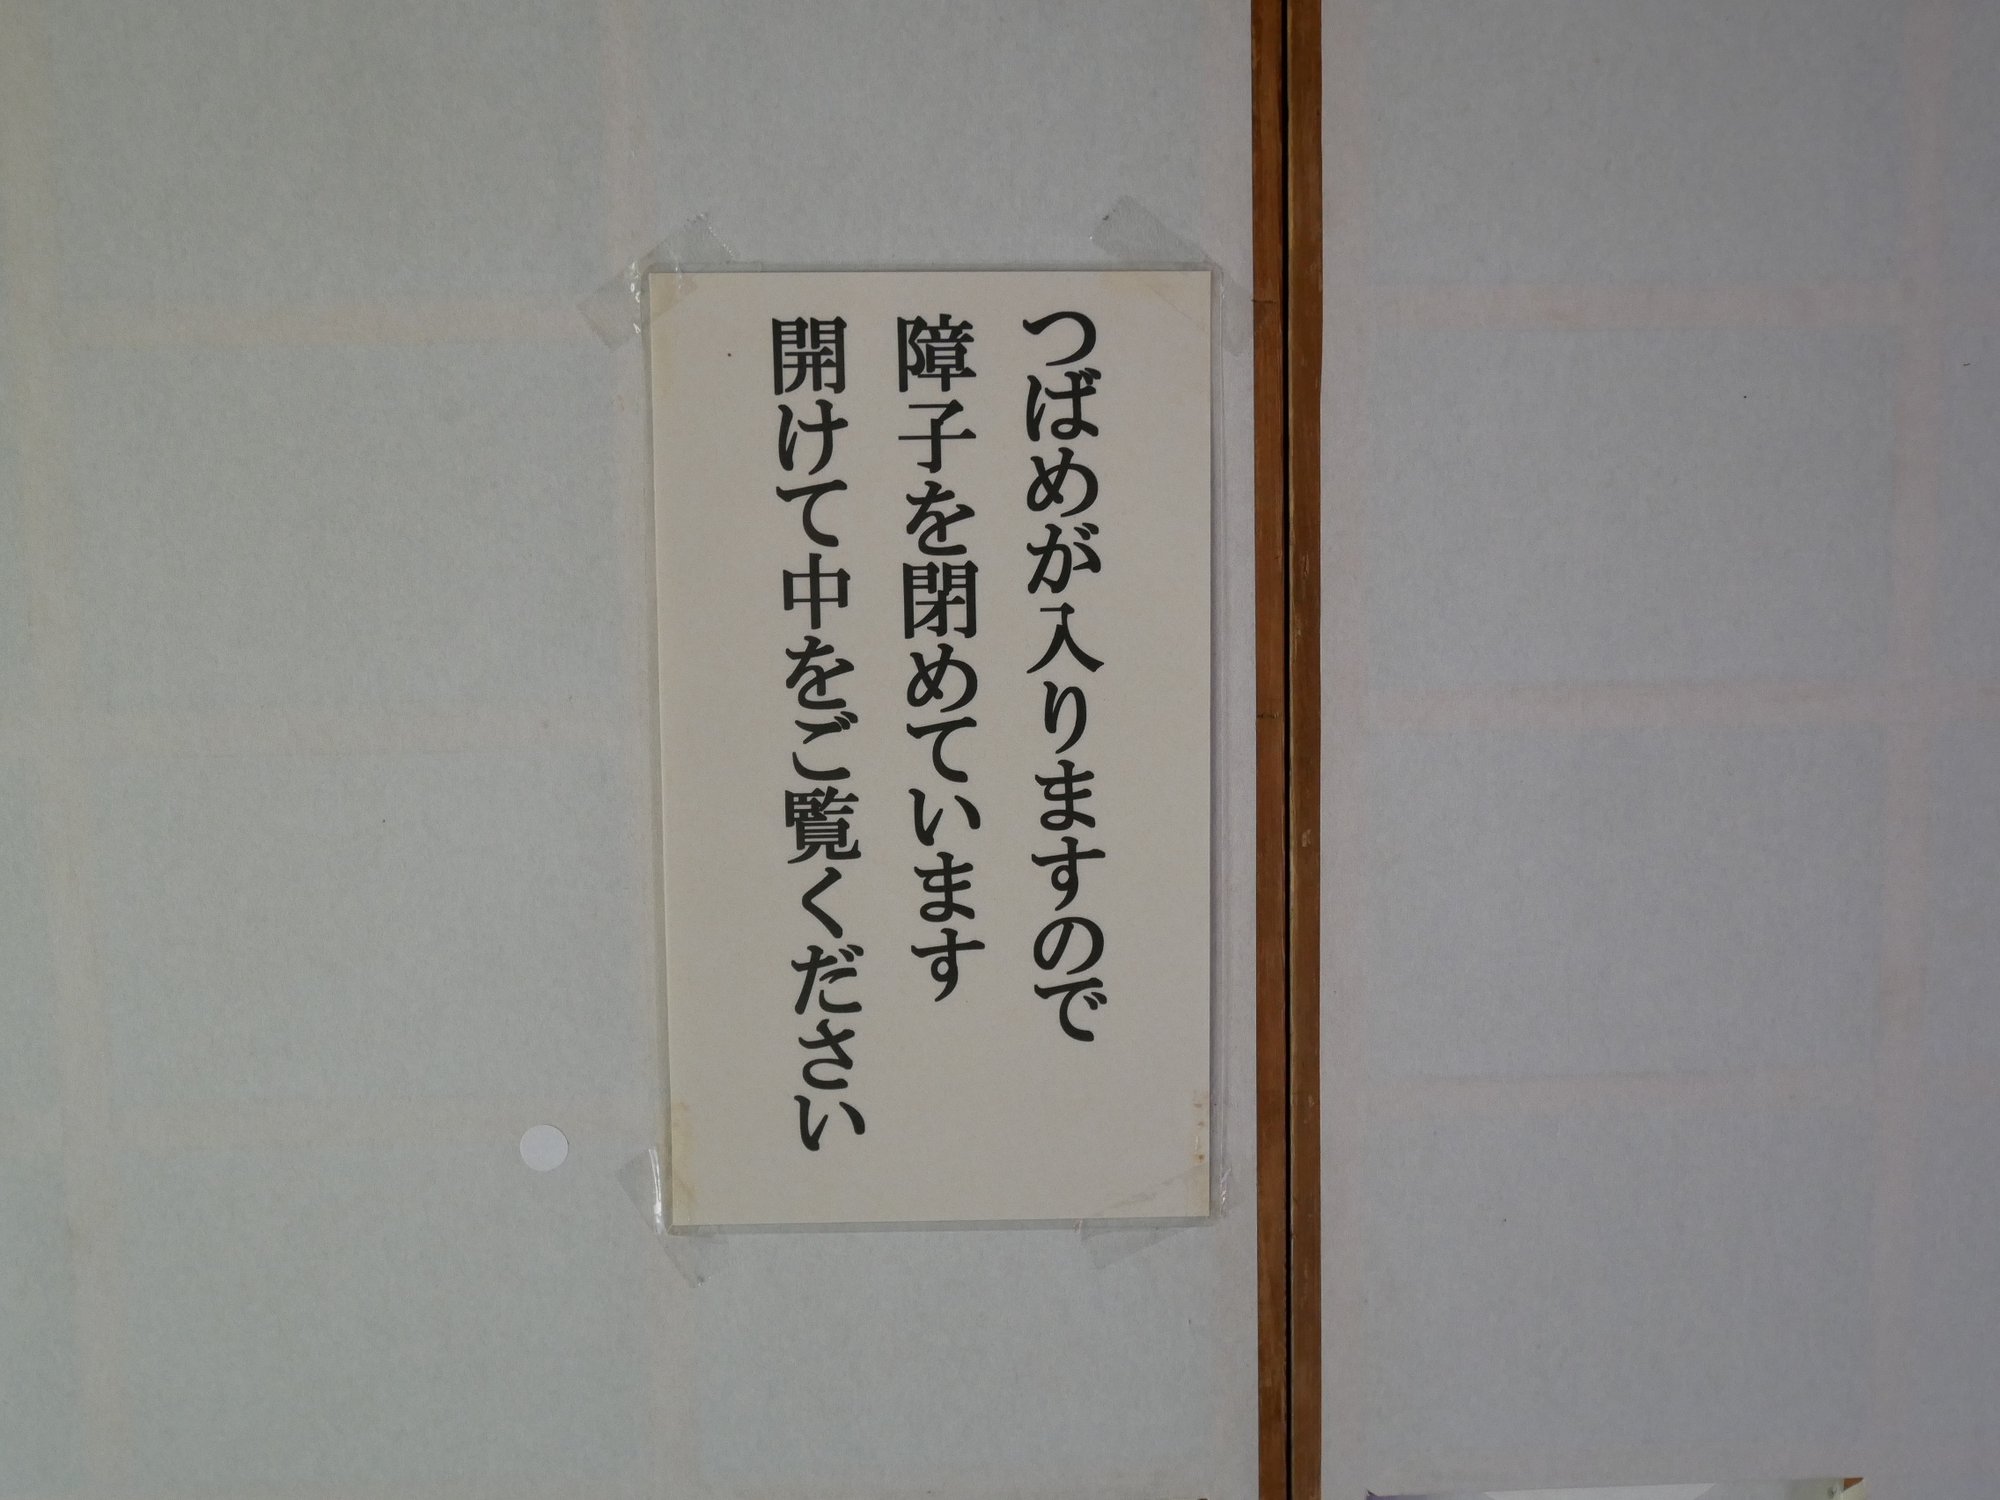 つばめが入りますので
障子を閉めています
開けて中をご覧ください